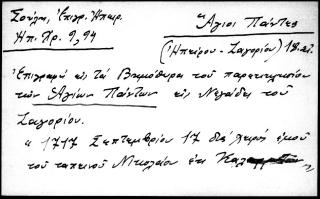 Σούλη, Ἐπιγρ. Ἠπειρ.
Ἠπ. Χρ. 9, 94
Ἅγιοι Πάντες
(Ἠπείρου - Ζαγορίου) 18. αἰ.
Ἐπιγραφή εἰς τά Βημόθυρα τοῦ παρεκκλησίου
τῶν Ἁγίων Πάντων εἰς Νεγάδες τοῦ
Ζαγορίου.
" 1717 Σεπτεμβρίου 17 διά χειρός ἐμοῦ
τοῦ ταπεινοῦ Νικολάου ἐκ